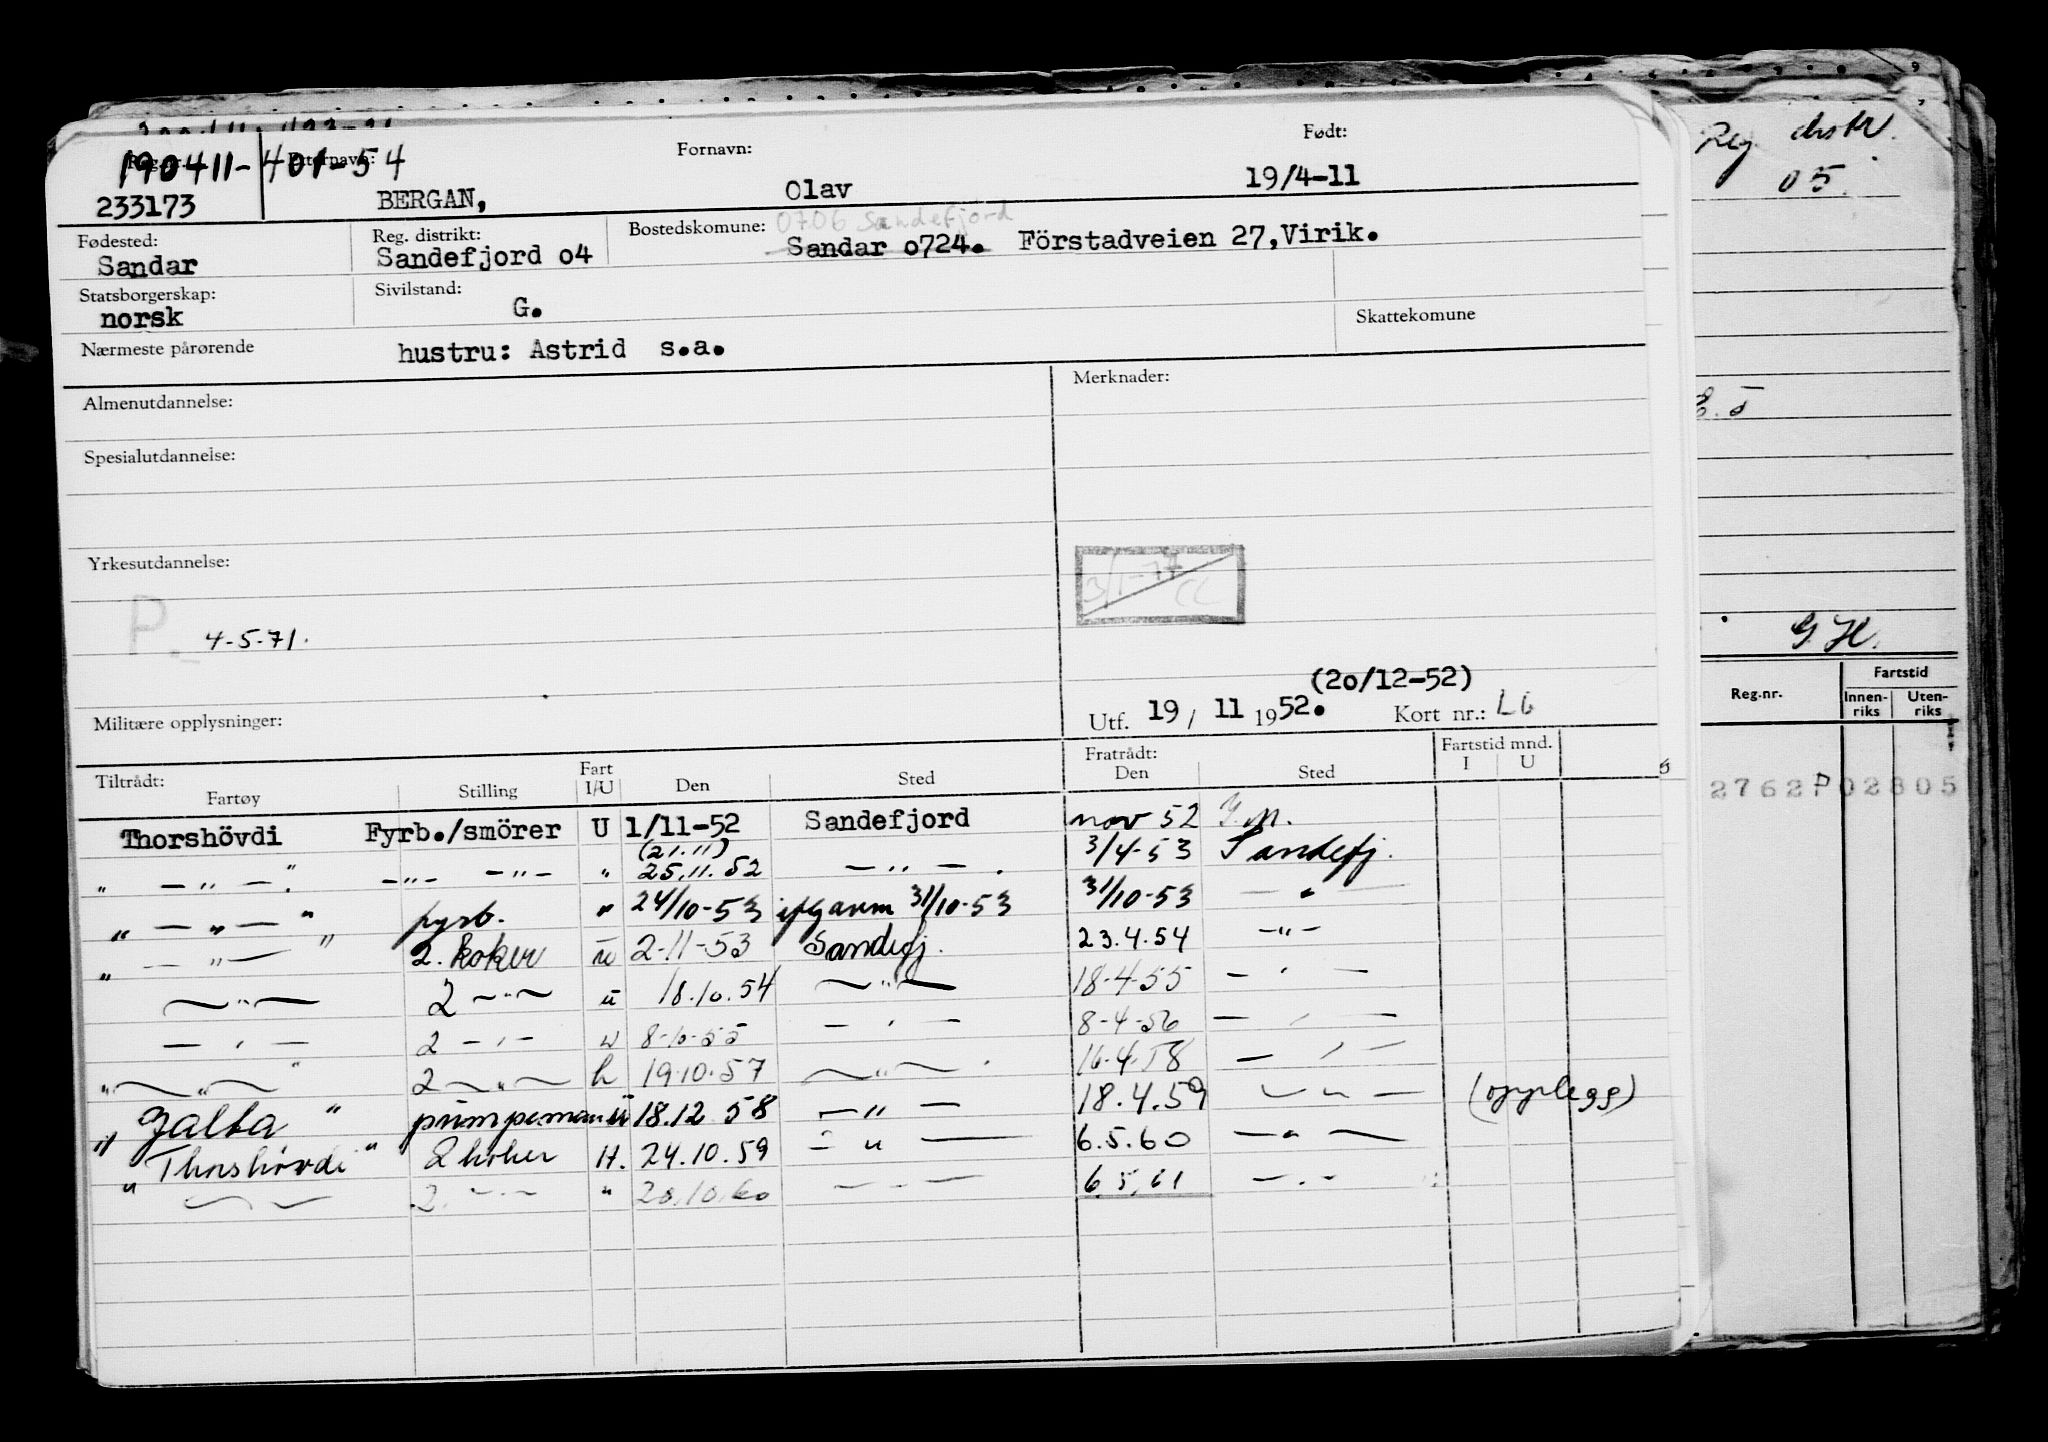 190411-401-54
Reg.nr. Etternavn: Fornavn: Født:
233173 BERGAN, Olav 19/4-11
Fødested: Reg. distrikt: Bostedskomune: 0706 Sandefjord
Sandar Sandefjord o4 Sandar o724. Förstadveien 27, Virik.
Statsborgerskap: Sivilstand:
norsk G.
Skattekomune
Nærmeste pårørende hustru: Astrid s.a.
Almenutdannelse: Merknader:
Spesialutdannelse:
Yrkesutdannelse:
3/1-77 CC
P. 4-5-71.
(20/12-52)
Militære opplysninger: Utf. 19 / 11 1952. Kort nr.: L6
Tiltrådt: Fart Fratrådt: Fartstid mnd.
Fartøy Stilling I/U Den Sted Den Sted I U
Thorshövdi Fyrb./smörer U 1/11-52 Sandefjord nov 52 Y.M.
(21.11)
" — " — " -"- -"- " 25.11.52 — " — . 3/4-53 Sandefj.
" — " — " fyrb. " 24/10-53 31/10-53 31/10-53 — " —
" — " — " 2. koker u 2-11-53 Sandefj. 23.4.54 -"-
— " — 2 — " — u 18.10.54 — " — 18-4-55 — " —
— " — 2 — " — u 8-10-55 — " — 8-4-56 — " —
" — " — " 2 — " — h 19.10.57 — " — 16.4.58 — " —
" Jalta " pumpeman u 18.12.58 — " — 18.4.59 — " — (opplegg)
" Thorshövdi " 2 koker H. 24.10.59 — " — 6.5.60 — " —
" — " — 2. — " — " 20.10.60 — " — 6.5.61 — " —
Reg. distr.
05.
G.H.
Reg.nr. Fartstid
Innen-riks Uten-riks
2762P02805